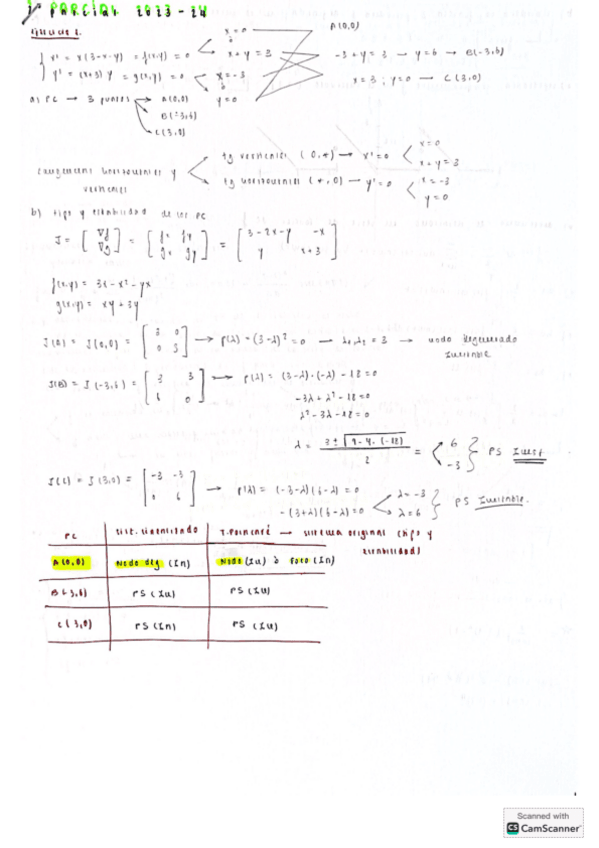 1º PARCIAL 2023-24
Ejercicio 1.
x=0
A(0,0)
x' = x(3-x-y) = f(x,y) = 0
x+y=3
-3+y=3 → y=6 → B(-3,6)
y' = (x+3)y = g(x,y) = 0
x=-3
y=0
x=3; y=0 → C(3,0)
a) PC → 3 puntos
A(0,0)
B(-3,6)
C(3,0)
tangencias horizontales y verticales
tg verticales (0,*) → x'=0
x=0
x+y=3
tg horizontales (*,0) → y'=0
x=-3
y=0
b) tipo y estabilidad de los PC
J = [∇f ∇g] = [fx fy gx gy] = [3-2x-y -x y x+3]
f(x,y) = 3x-x²-yx
g(x,y) = xy+3y
J(A) = J(0,0) = [3 0 0 3] → p(λ) = (3-λ)² = 0 → λ1,λ2 = 3 → nodo degenerado inestable
J(B) = J(-3,6) = [3 3 6 0] → p(λ) = (3-λ)·(-λ) - 18 = 0
-3λ+λ²-18=0
λ²-3λ-18=0
λ = 3±√9-4·(-18) / 2 = 6 -3 } PS Inest
J(C) = J(3,0) = [-3 -3 0 6] → p(λ) = (-3-λ)(6-λ) = 0
-(3+λ)(6-λ)=0
λ=-3
λ=6
PS Inestable.
PC
Sist. linealizado
T. Poincaré → sistema original (tipo y estabilidad)
A(0,0)
Nodo deg (In)
Nodo (In) ó Foco (In)
B(-3,6)
PS (In)
PS (In)
C(3,0)
PS (In)
PS (In)
Scanned with
CS CamScanner